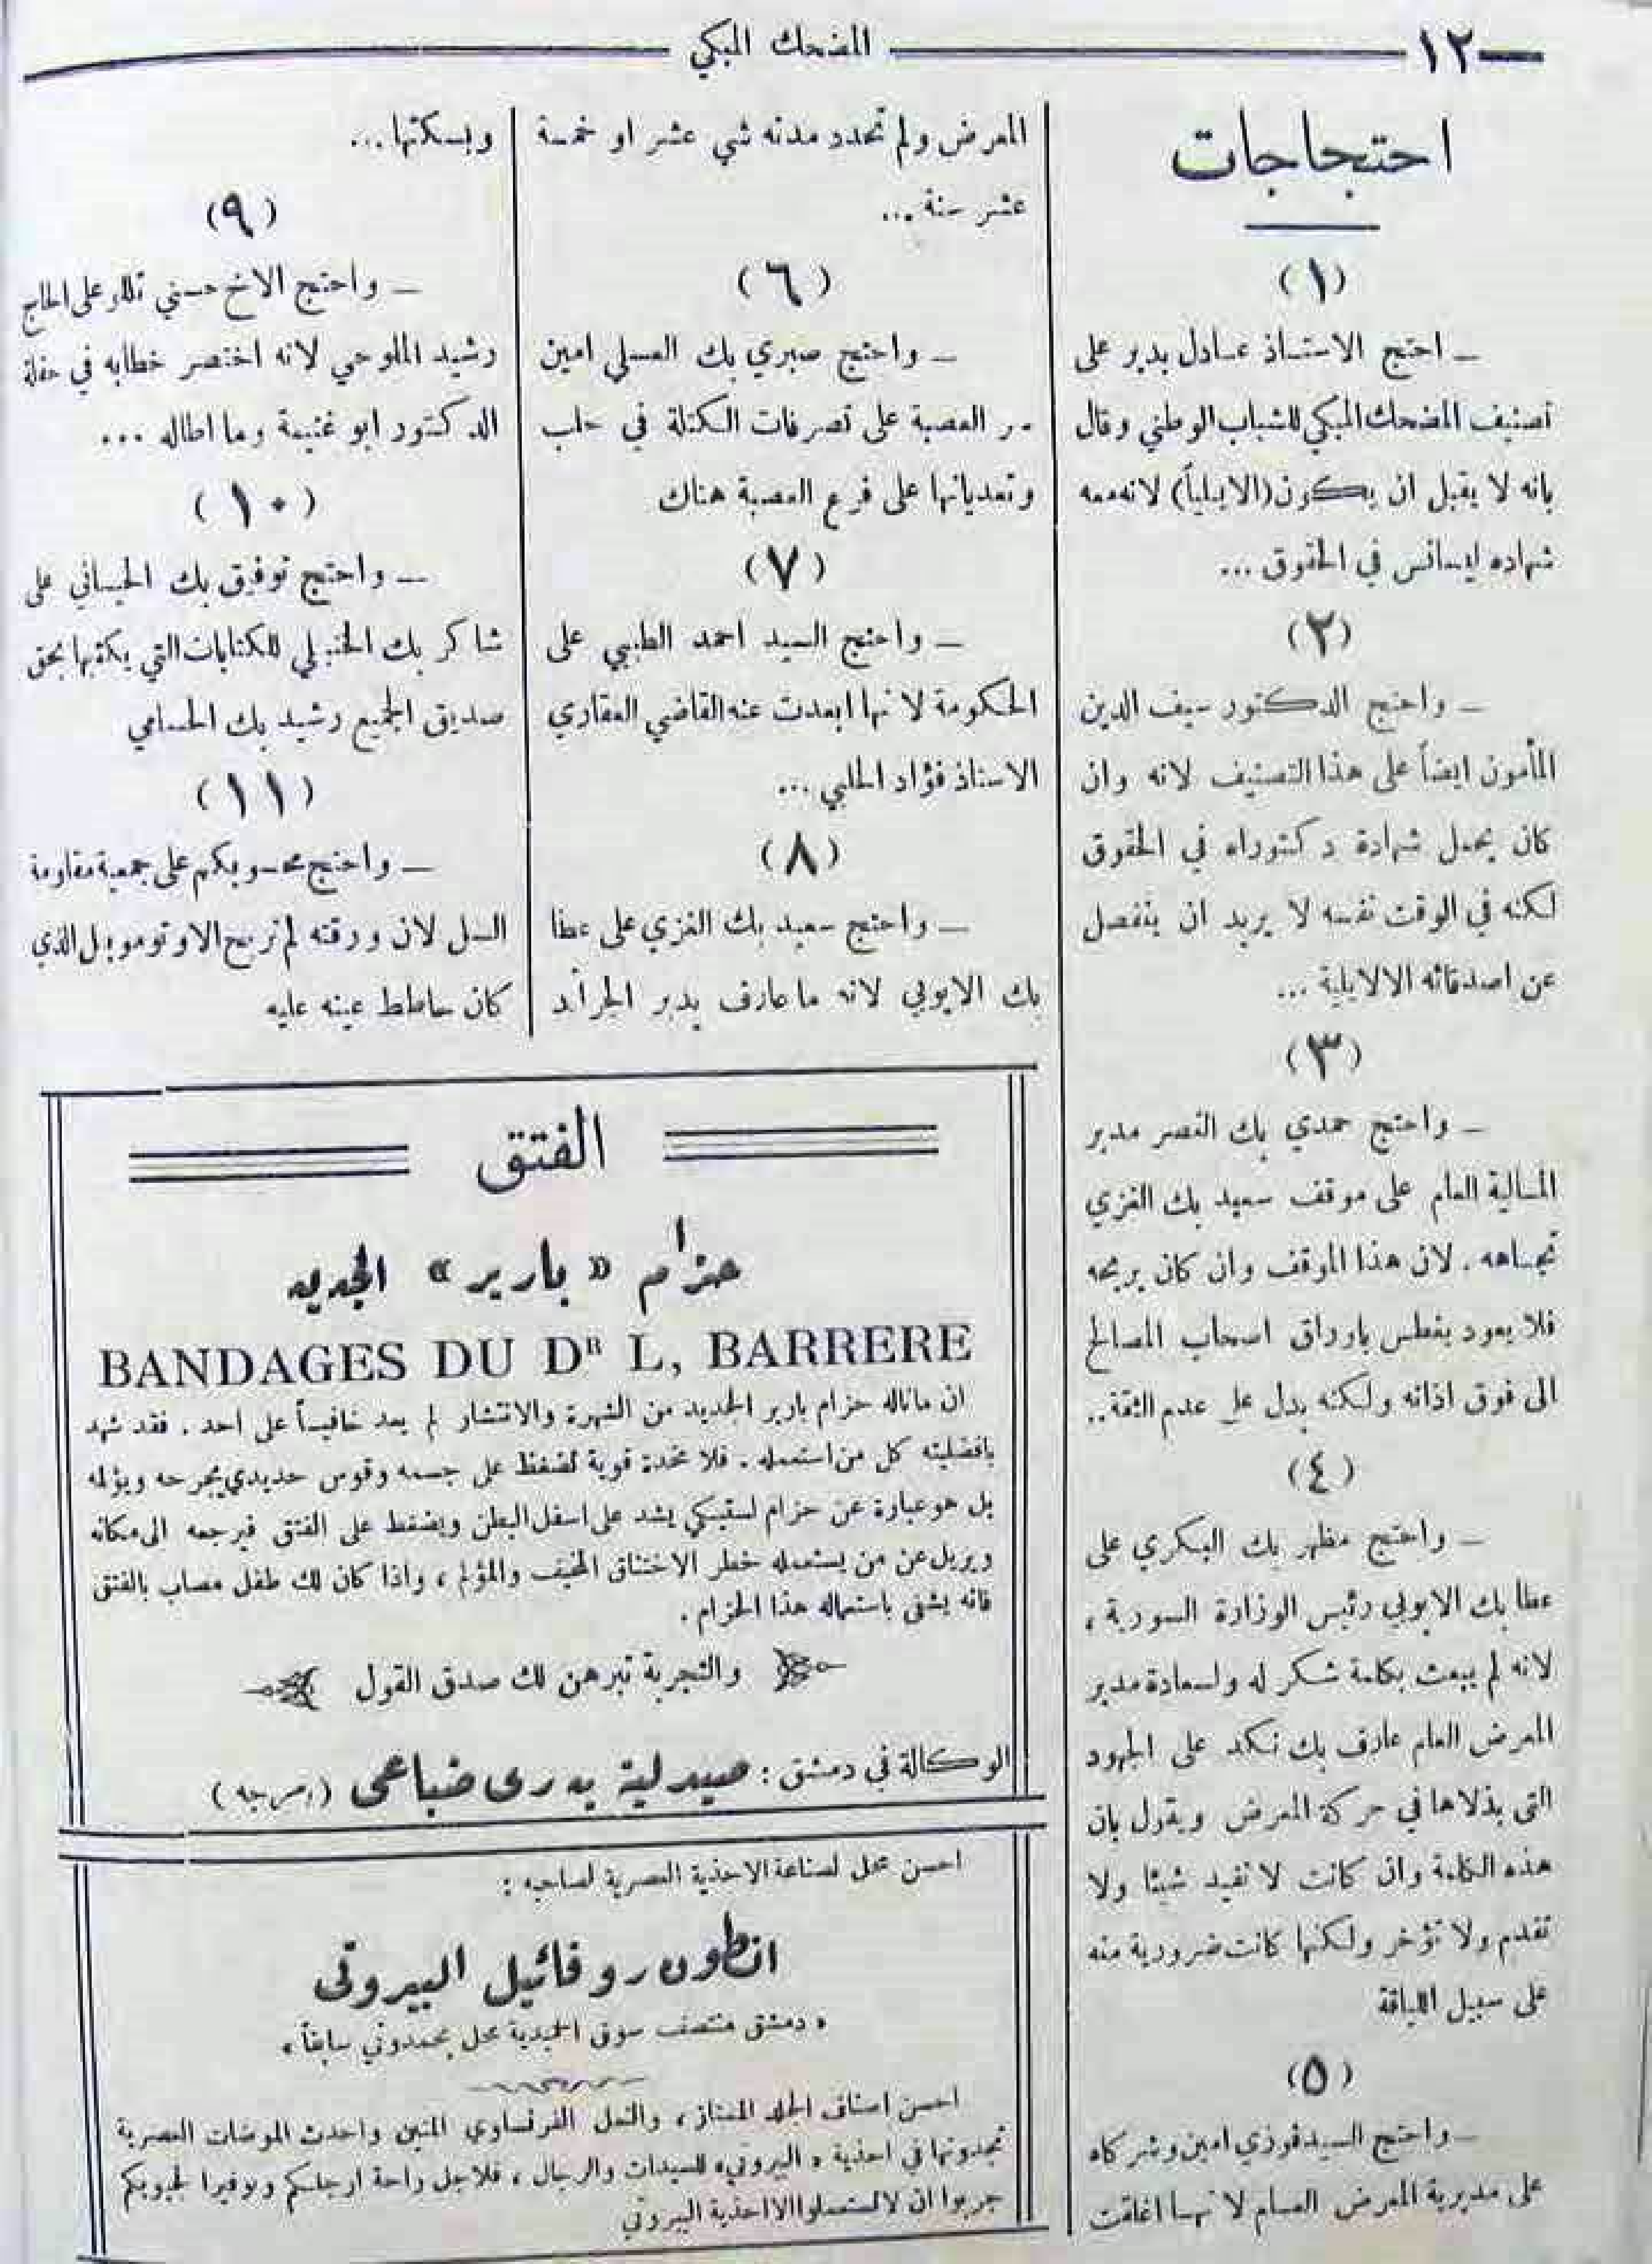 ١٢
المضحك المبكي
احتجاجات
(١)
ـ احتج الاستاذ عادل بدير على
تصنيف المضحك المبكي للشباب الوطني وقال
بانه لا يقبل ان يكون (الايلياً) لانه معه
شهاده ليسانس في الحقوق ...
(٢)
ـ واحتج الدكتور سيف الدين
المأمون ايضاً على هذا التصنيف لانه وان
كان يحمل شهادة دكتوراه في الحقوق
لكنه في الوقت نفسه لا يريد ان ينفصل
عن اصدقائه الالايلية ...
(٣)
ـ واحتج حمدي بك النصر مدير
المالية العام على موقف سعيد بك الغزي
تجاهه . لان هذا الموقف وان كان يريحه
فلا يعود يغطس باوراق اصحاب المصالح
الى فوق اذانه ولكنه يدل على عدم الثقة ..
(٤)
ـ واحتج مظهر بك البكري على
عطا بك الايوبي رئيس الوزارة السورية ،
لانه لم يبعث بكلمة شكر له ولسعادة مدير
المعرض العام عارف بك نكد على الجهود
التي بذلاها في حركة المعرض ويقول بان
هذه الكلمة وان كانت لا تفيد شيئا ولا
تقدم ولا تؤخر ولكنها كانت ضرورية منه
على سبيل اللياقة
(٥)
ـ واحتج السيد فوزي امين وشركاه
على مديرية المعرض العام لانها اغلقت
المعرض ولم تحدد مدته شي عشر او خمسة
عشر سنة ...
(٦)
ـ واحتج صبري بك العسلي امين
سر العصبة على تصرفات الكتلة في حلب
وتعدياتها على فرع العصبة هناك
(٧)
ـ واحتج السيد احمد الطيبي على
الحكومة لانها ابعدت عنه القاضي العقاري
الاستاذ فؤاد الحلبي ...
(٨)
ـ واحتج سعيد بك الغزي على عطا
بك الايوبي لانه ما عارف يدبر الجرائد
ويسكتها ...
(٩)
ـ واحتج الاخ حسني تللو على الحاج
رشيد الملوحي لانه اختصر خطابه في حفلة
الدكتور ابو غنيمة وما اطاله ...
(١٠)
ـ واحتج توفيق بك الحياني على
شاكر بك الحنبلي للكتابات التي يكتبها بحق
صديق الجميع رشيد بك الحسامي
(١١)
ـ واحتج محسوبكم على جمعية مقاومة
السل لان ورقته لم تربح الاوتوموبيل الذي
كان حاطط عينه عليه
الفتق
حزام « بارير » الجديد
BANDAGES DU Dᴿ L, BARRERE
ان ماناله حزام بارير الجديد من الشهرة والانتشار لم يعد خافياً على احد . فقد شهد
بافضليته كل من استعمله . فلا مخدة قوية تضغط على جسمه وقوس حديدي يجرحه ويؤلمه
بل هو عبارة عن حزام لستيكي يشد على اسفل البطن ويضغط على الفتق فيرجعه الى مكانه
ويزيل عن من يستعمله خطر الاختناق المخيف والمؤلم ، واذا كان لك طفل مصاب بالفتق
فانه يشفى باستعماله هذا الحزام .
والتجربة تبرهن لك صدق القول
الوكالة في دمشق : صيدلية بدري ضباعي (بمرجه)
احسن محل لصناعة الاحذية العصرية لصاحبه :
انطون روفائيل البيروتي
« دمشق منتصف سوق الحميدية محل بحمدوني سابقاً »
احسن اصناف الجلد الممتاز ، والنعل الفرنساوي المتين واحدث الموضات العصرية
تجدونها في احذية « البيروتي » للسيدات والرجال ، فلاجل راحة ارجلكم وتوفيرا لجيوبكم
جربوا ان لا تستعملوا الا احذية البيروتي